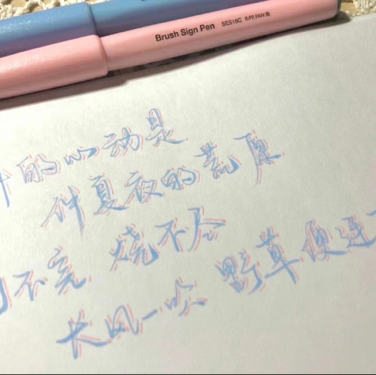 Brush Sign Pen SES15C
的心动是
仲夏夜的荒原
不完 烧不尽
长风一吹 野草便连